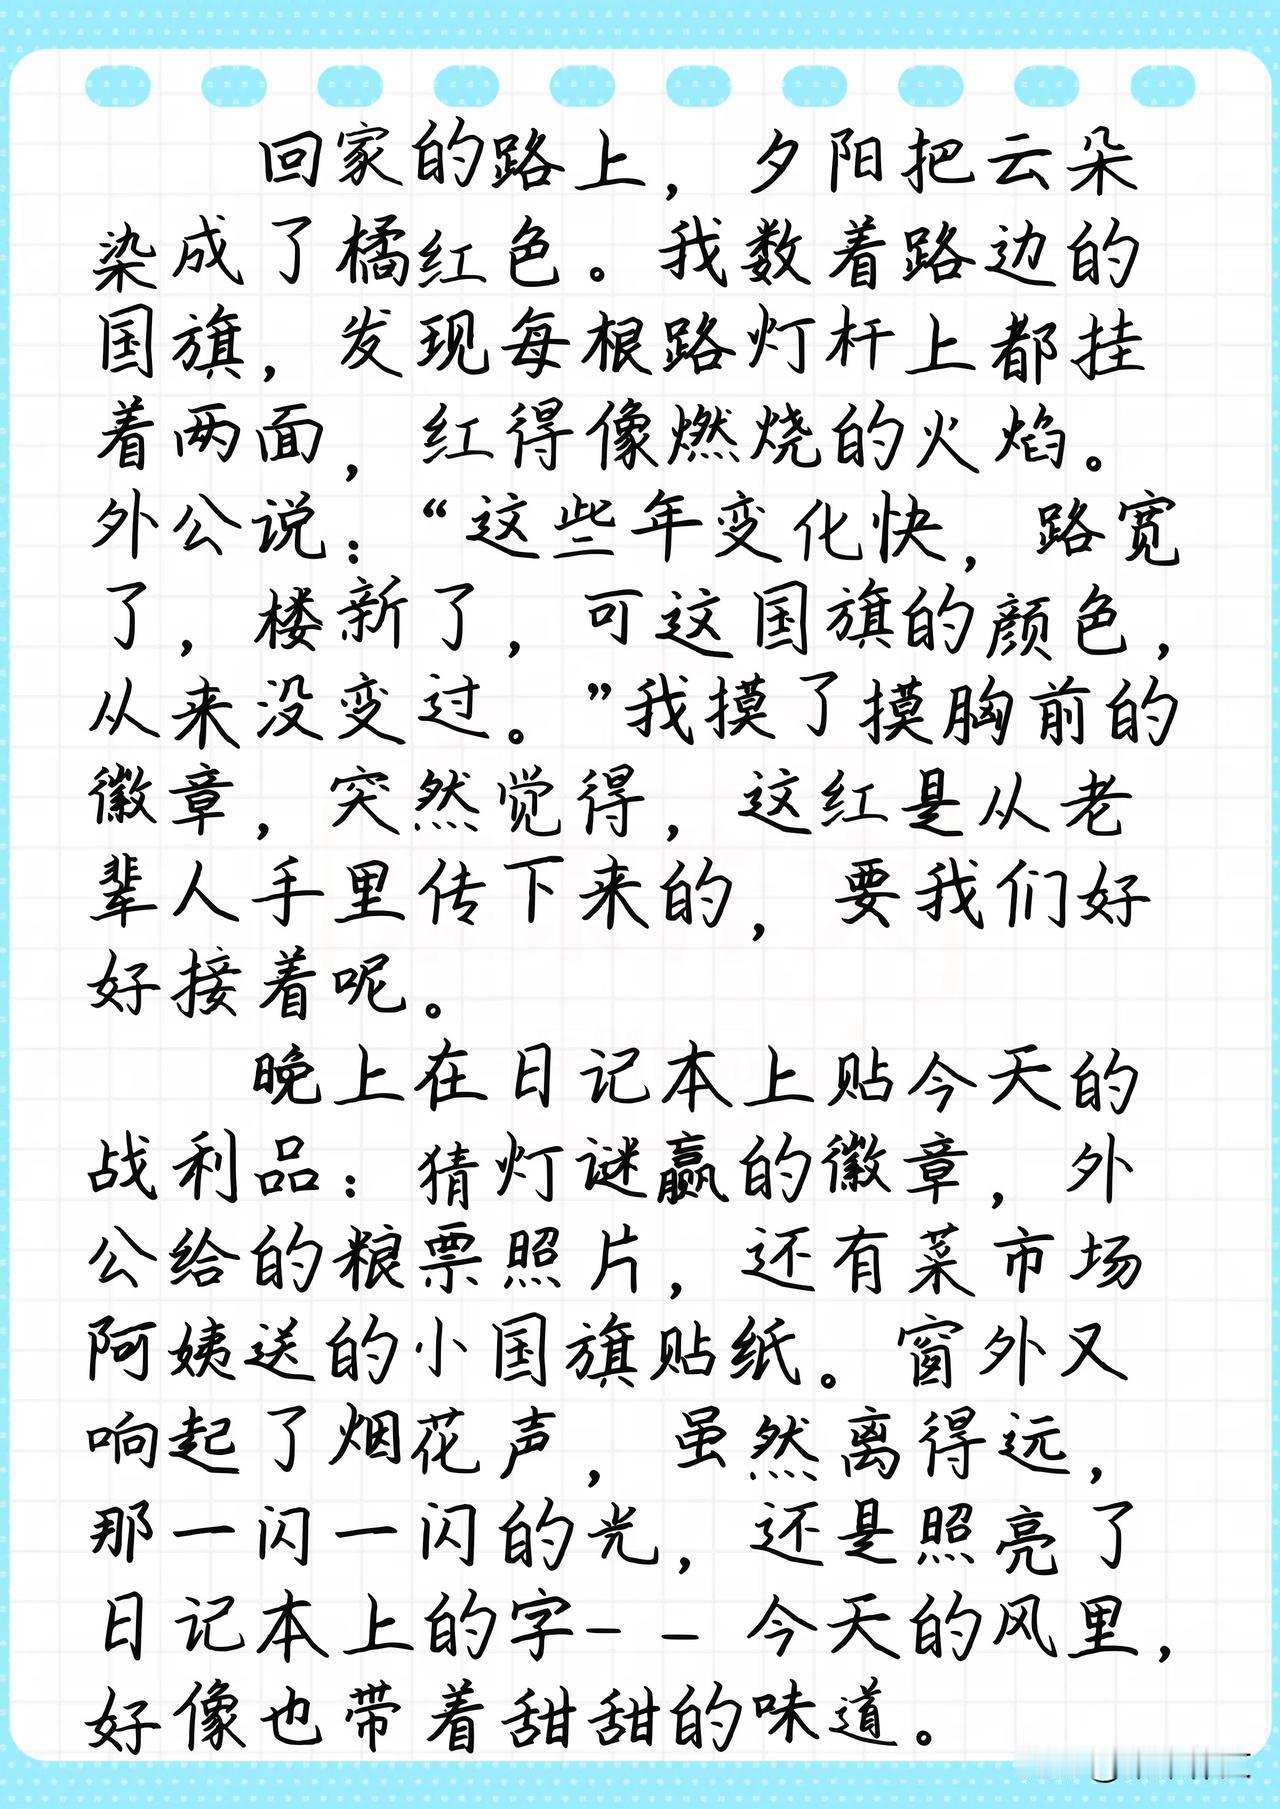 回家的路上，夕阳把云朵
染成了橘红色。我数着路边的
国旗，发现每根路灯杆上都挂
着两面，红得像燃烧的火焰。
外公说：“这些年变化快，路宽
了，楼新了，可这国旗的颜色，
从来没变过。”我摸了摸胸前的
徽章，突然觉得，这红是从老
辈人手里传下来的，要我们好
好接着呢。
晚上在日记本上贴今天的
战利品：猜灯谜赢的徽章，外
公给的粮票照片，还有菜市场
阿姨送的小国旗贴纸。窗外又
响起了烟花声，虽然离得远，
那一闪一闪的光，还是照亮了
日记本上的字--今天的风里，
好像也带着甜甜的味道。